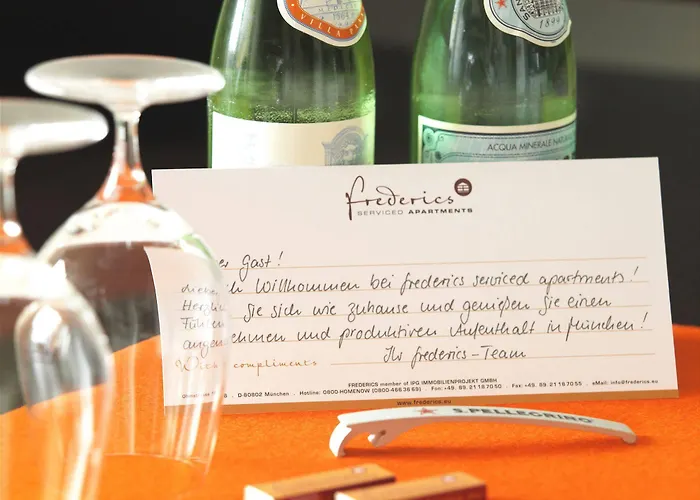 VILLA PA
1899
ACQUA MINERALE NATURA
frederics
SERVICED APARTMENTS
er Gast!
Herzlich Willkommen bei frederics serviced apartments!
Fühlen Sie sich wie zuhause und genießen Sie einen
angenehmen und produktiven Aufenthalt in München!
Ihr frederics-Team
With compliments
FREDERICS member of IPG IMMOBILIENPROJEKT GMBH
D-80802 München . Hotline: 0800-HOMENOW (0800-466 36 69) . Fon: +49. 89. 21 18 70 50 . Fax: +49. 89. 21 18 70 55 . eMail: info@frederics.eu
www.frederics.eu
S.PELLEGRINO